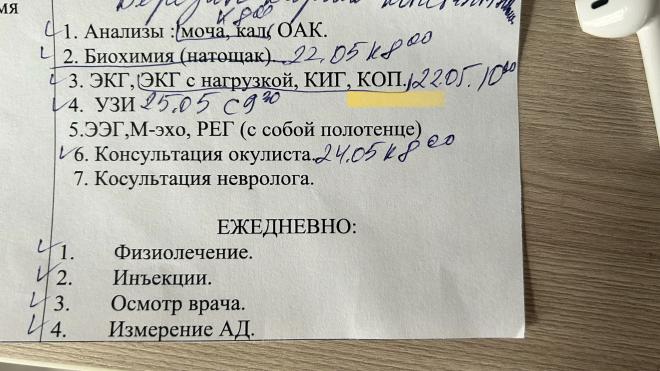 мя
к 8 00
1. Анализы : моча, кал, ОАК.
2. Биохимия (натощак). 22.05 к 8 00
3. ЭКГ, ЭКГ с нагрузкой, КИГ, КОП. 22.05. 10 00
4. УЗИ 25.05 с 9 30
5.ЭЭГ,М-эхо, РЕГ (с собой полотенце)
6. Консультация окулиста. 24.05 к 8 00
7. Косультация невролога.
ЕЖЕДНЕВНО:
1. Физиолечение.
2. Инъекции.
3. Осмотр врача.
4. Измерение АД.